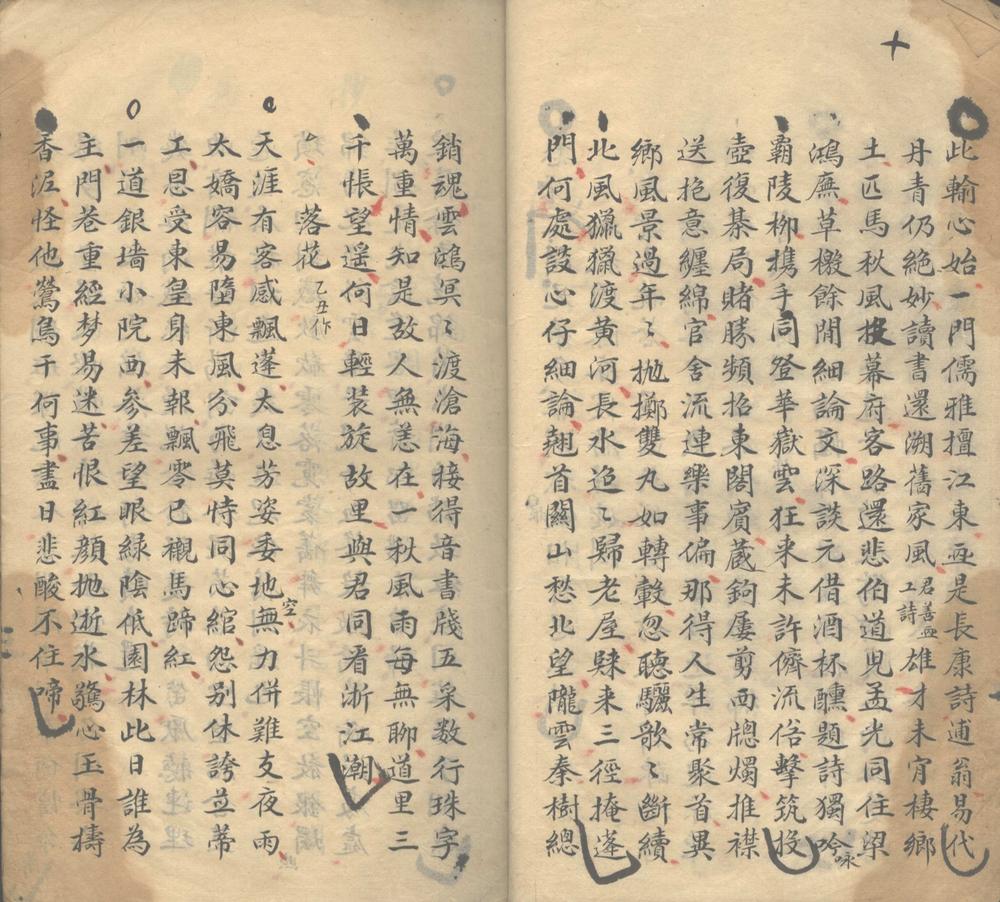 此輸心始一門儒雅擅江東亟是長康詩逋翁易代
丹青仍絕妙讀書還溯舊家風君善畫工詩雄才未肯棲鄉
土匹馬秋風投幕府客路還悲伯道兒孟光同住梁
鴻廡草檄餘閒細論文深談元借酒杯醺題詩獨吟咏
霸陵柳攜手同登華嶽雲狂来未許儕流俗擊筑投
壺復棊局賭勝頻招東閣賓蔵鉤屢剪西牕燭推襟
送抱意纏綿官舍流連樂事偏那得人生常聚首異
鄉風景過年〻拋擲雙丸如轉轂忽聽驪歌〻斷續
北風獵獵渡黄河長水迢〻歸老屋賕来三徑掩蓬
門何處談心仔細論翹首關山愁北望隴雲秦樹總
銷魂雲鴻溟〻渡滄海接得音書牋五采数行珠字
萬重情知是故人無恙在一秋風雨每無聊道里三
千悵望遥何日輕装旋故里與君同看浙江潮
落花乙丑作
天涯有客感飄蓬太息芳姿委地空無力併難支夜雨
太嬌容易墮東風分飛莫恃同心綰怨别休誇並蒂
工恩受東皇身未報飄零已襯馬蹄紅
一道銀墻小院西參差望眼緑陰低園林此日誰為
主門巷重經梦易迷苦恨紅顔拋逝水驚心玉骨擣
香泥怪他鶯鳥干何事盡日悲酸不住啼